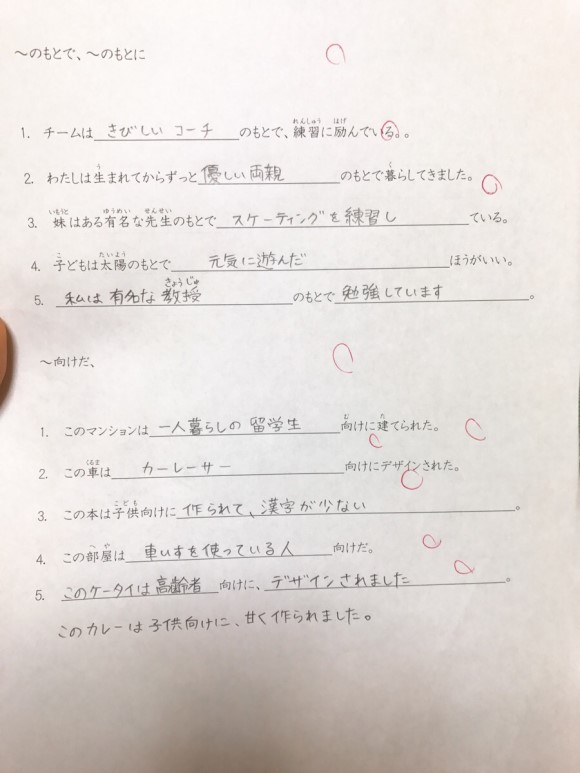 ～のもとで、～のもとに
1. チームは きびしい コーチ のもとで、練習に励んでいる。。
2. わたしは生まれてからずっと 優しい両親 のもとで暮らしてきました。
3. 妹はある有名な先生のもとで スケーティングを練習し ている。
4. 子どもは太陽のもとで 元気に遊んだ ほうがいい。
5. 私は有名な教授 のもとで 勉強しています 。
～向けだ、
1. このマンションは 一人暮らしの 留学生 向けに建てられた。
2. この車は カーレーサー 向けにデザインされた。
3. この本は子供向けに 作られて、漢字が少ない 。
4. この部屋は 車いすを使っている人 向けだ。
5. このケータイは高齢者 向けに、 デザインされました 。
このカレーは子供向けに、甘く作られました。